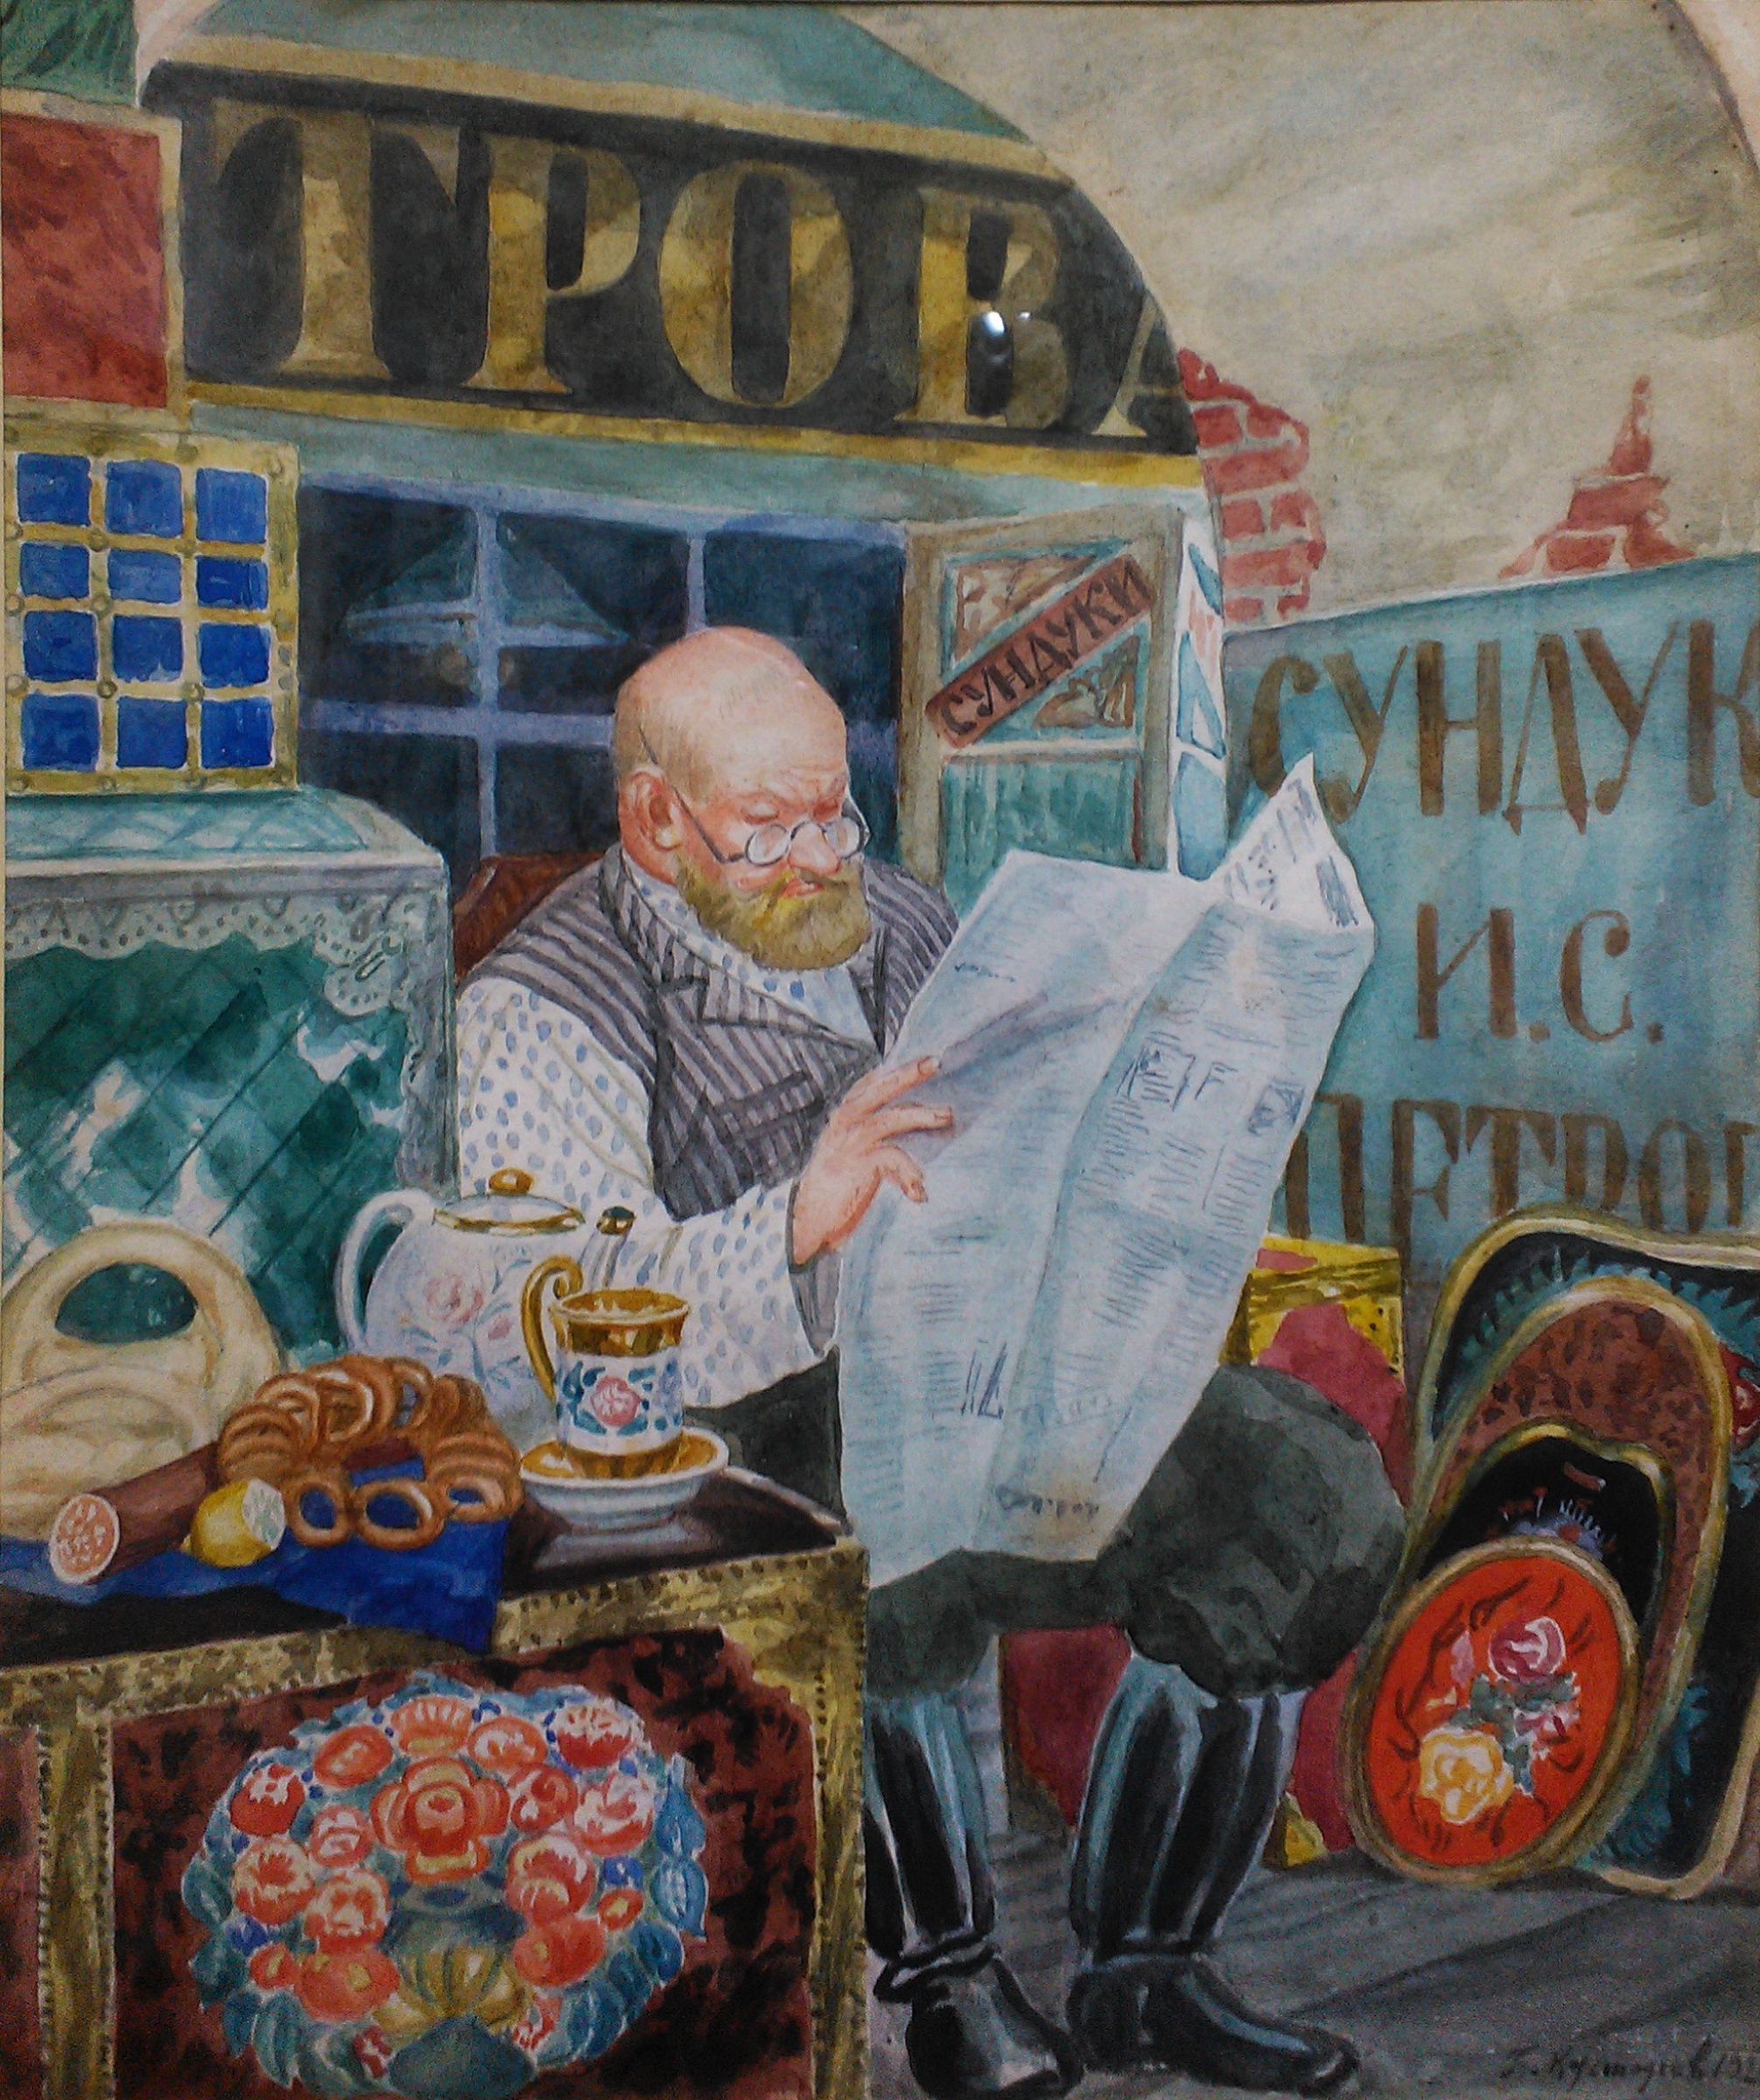 ТРОВА
СУНДУКИ
СУНДУК
И.С.
ПЕТРОВ
Б. Кустодиев